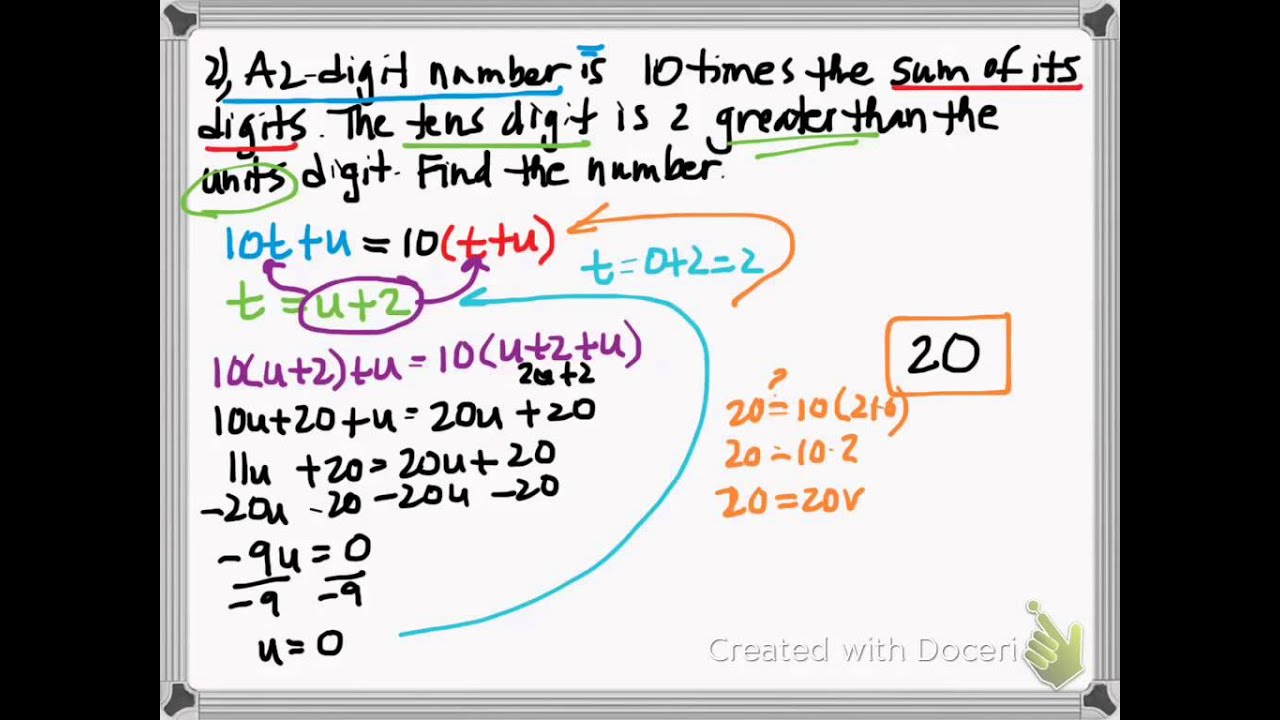 2), A 2-digit number is 10 times the sum of its
digits. The tens digit is 2 greater than the
units digit. Find the number.
10t+u = 10(t+u)
t = 0+2 = 2
t = u+2
10(u+2)+u = 10(u+2+u)
2u+2
10u+20+u = 20u+20
11u +20 = 20u+20
-20u -20 -20u -20
-9u = 0
-9 -9
u = 0
20
?
20 = 10(2+0)
20 = 10·2
20 = 20✓
Created with Doceri